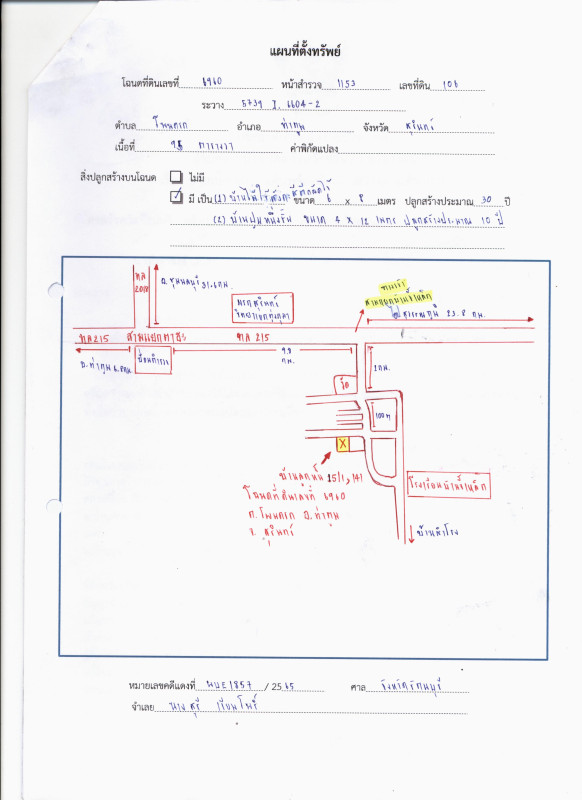 แผนที่ตั้งทรัพย์
โฉนดที่ดินเลขที่ 6960 หน้าสำรวจ 1153 เลขที่ดิน 108
ระวาง 5739 I 6604-2
ตำบล โพนครก อำเภอ ท่าตูม จังหวัด สุรินทร์
เนื้อที่ 95 ตารางวา ค่าพิกัดแปลง
สิ่งปลูกสร้างบนโฉนด ไม่มี
มี เป็น (1) บ้านไม้ใต้ถุน ขนาด 6 x 8 เมตร ปลูกสร้างประมาณ 30 ปี
(2) บ้านปูนหนึ่งชั้น ขนาด 4 x 12 เมตร ปลูกสร้างประมาณ 10 ปี
ทล 2081
อ.ชุมพลบุรี 31.6 กม.
ไปสุวรรณภูมิ 23.8 กม.
ทล 215 สามแยกท่าช้าง ทล 215
อ.ท่าตูม 6.8 กม.
ป้อมตำรวจ
9.8 กม.
1 กม.
วัด
100 ม
X
บ้านลูกหนี้ 15/1, 141
โฉนดที่ดินเลขที่ 6960
ต.โพนครก อ.ท่าตูม
จ.สุรินทร์
บ้านสำโรง
หมายเลขคดีแดงที่ ผบE1857 / 2565 ศาล จังหวัดรัตนบุรี
จำเลย นางสุรี เรียนโพธิ์